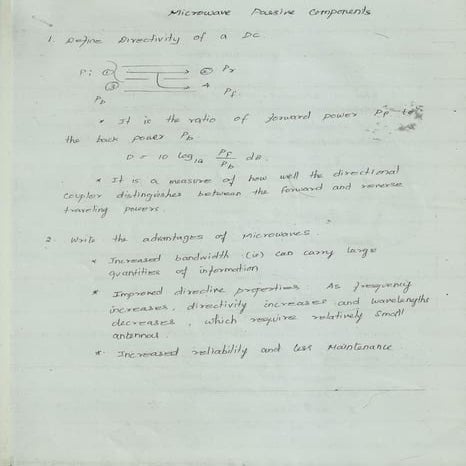 Microwave Passive Components
1. Define Directivity of a DC
Pi ① ② Pr
③ 4 Pf
Pb
* It is the ratio of forward power Pf to
the back power Pb
D = 10 log10 Pf/Pb dB.
* It is a measure of how well the directional
coupler distinguishes between the forward and reverse
traveling powers.
2. Write the advantages of Microwaves.
* Increased bandwidth (ie) can carry large
quantities of information
* Improved directive properties. As frequency
increases, directivity increases and wavelengths
decreases, which require relatively small
antennas.
* Increased reliability and less Maintenance